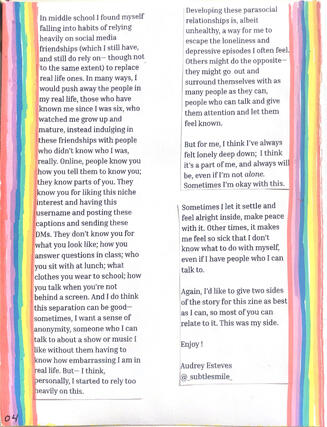 In middle school I found myself
falling into habits of relying
heavily on social media
friendships (which I still have,
and still do rely on— though not
to the same extent) to replace
real life ones. In many ways, I
would push away the people in
my real life, those who have
known me since I was six, who
watched me grow up and
mature, instead indulging in
these friendships with people
who didn't know who I was,
really. Online, people know you
how you tell them to know you;
they know parts of you. They
know you for liking this niche
interest and having this
username and posting these
captions and sending these
DMs. They don't know you for
what you look like; how you
answer questions in class; who
you sit with at lunch; what
clothes you wear to school; how
you talk when you're not
behind a screen. And I do think
this separation can be good—
sometimes, I want a sense of
anonymity, someone who I can
talk to about a show or music I
like without them having to
know how embarrassing I am in
real life. But— I think,
personally, I started to rely too
heavily on this.
04
Developing these parasocial
relationships is, albeit
unhealthy, a way for me to
escape the loneliness and
depressive episodes I often feel.
Others might do the opposite—
they might go out and
surround themselves with as
many people as they can,
people who can talk and give
them attention and let them
feel known.
But for me, I think I've always
felt lonely deep down; I think
it's a part of me, and always will
be, even if I'm not alone.
Sometimes I'm okay with this.
Sometimes I let it settle and
feel alright inside, make peace
with it. Other times, it makes
me feel so sick that I don't
know what to do with myself,
even if I have people who I can
talk to.
Again, I'd like to give two sides
of the story for this zine as best
as I can, so most of you can
relate to it. This was my side.
Enjoy !
Audrey Esteves
@_subtlesmile_